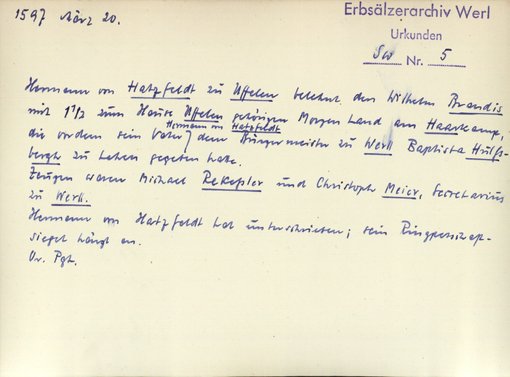 1597 März 20.
Erbsälzerarchiv Werl
Urkunden
Sw Nr. 5
Hermann von Hatzfeldt zu Uffelen belehnt den Wilhelm Brandis
mit 1 1/2 zum Hause Uffelen gehörigen Morgen Land am Haarkamp,
die vordem sein Vater Hermann von Hatzfeldt dem Bürgermeister zu Werll Baptista Hüls-
bergh zu Lehen gegeben habe.
Zeugen waren Michael Rekepler und Christoph Meier, Secretarius
zu Werll.
Hermann von Hatzfeldt hat unterschrieben; sein Ringpetschaft-
siegel hängt an.
Or. Pgt.